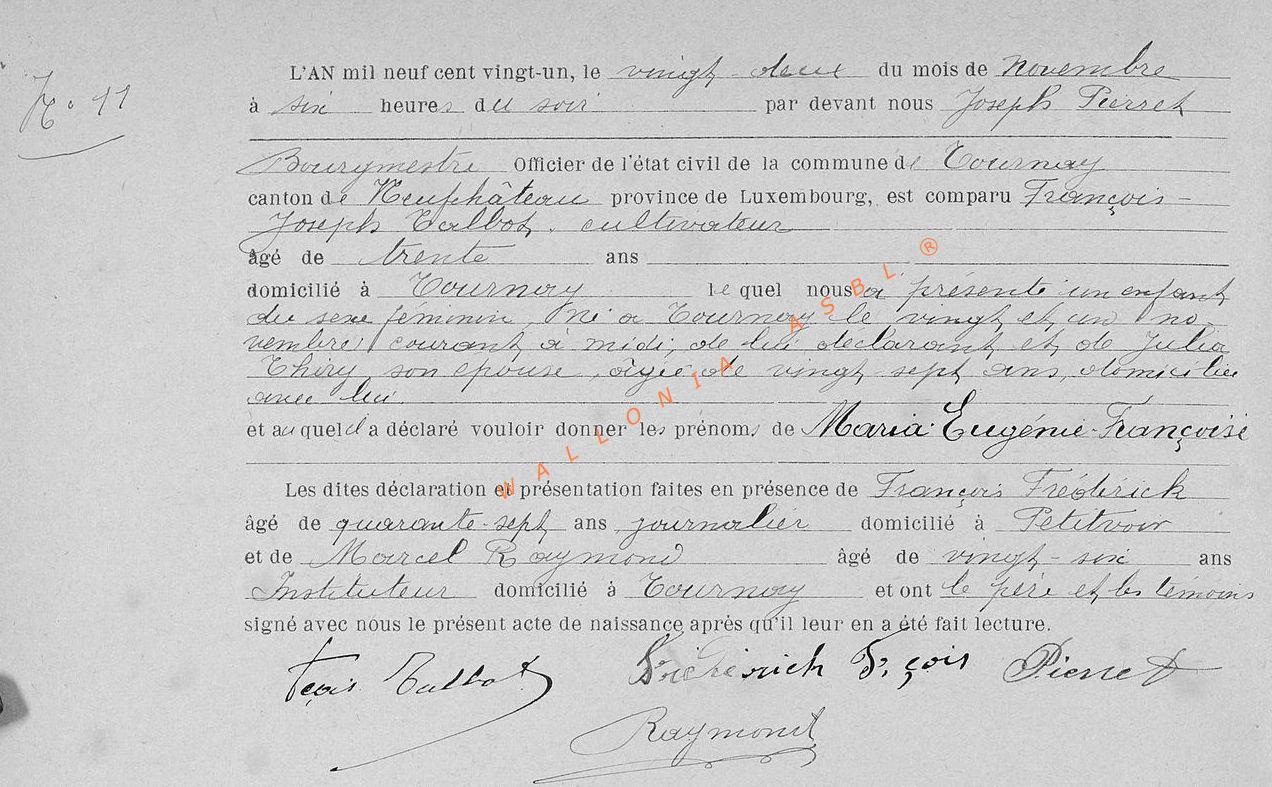 N° 11
L'AN mil neuf cent vingt-un, le vingt-deux du mois de Novembre
à six heures du soir par devant nous Joseph Pierret
Bourgmestre Officier de l'état civil de la commune de Tournay
canton de Neufchâteau province de Luxembourg, est comparu François-
Joseph Talbot, cultivateur
âgé de trente ans
domicilié à Tournay lequel nous a présenté un enfant
du sexe féminin, né à Tournay le vingt et un no-
vembre courant à midi, de lui déclarant et de Julia
Thiry son épouse, âgée de vingt-sept ans, domiciliée
avec lui
et auquel il a déclaré vouloir donner les prénoms de Maria-Eugénie-Françoise
Les dites déclaration et présentation faites en présence de François Fréderick
âgé de quarante-sept ans journalier domicilié à Petitvoir
et de Marcel Raymond âgé de vingt-six ans
Instituteur domicilié à Tournay et ont le père et les témoins
signé avec nous le présent acte de naissance après qu'il leur en a été fait lecture.
Fçois Talbot Fçois Pierret
Raymond
WALLONIA ASBL ®